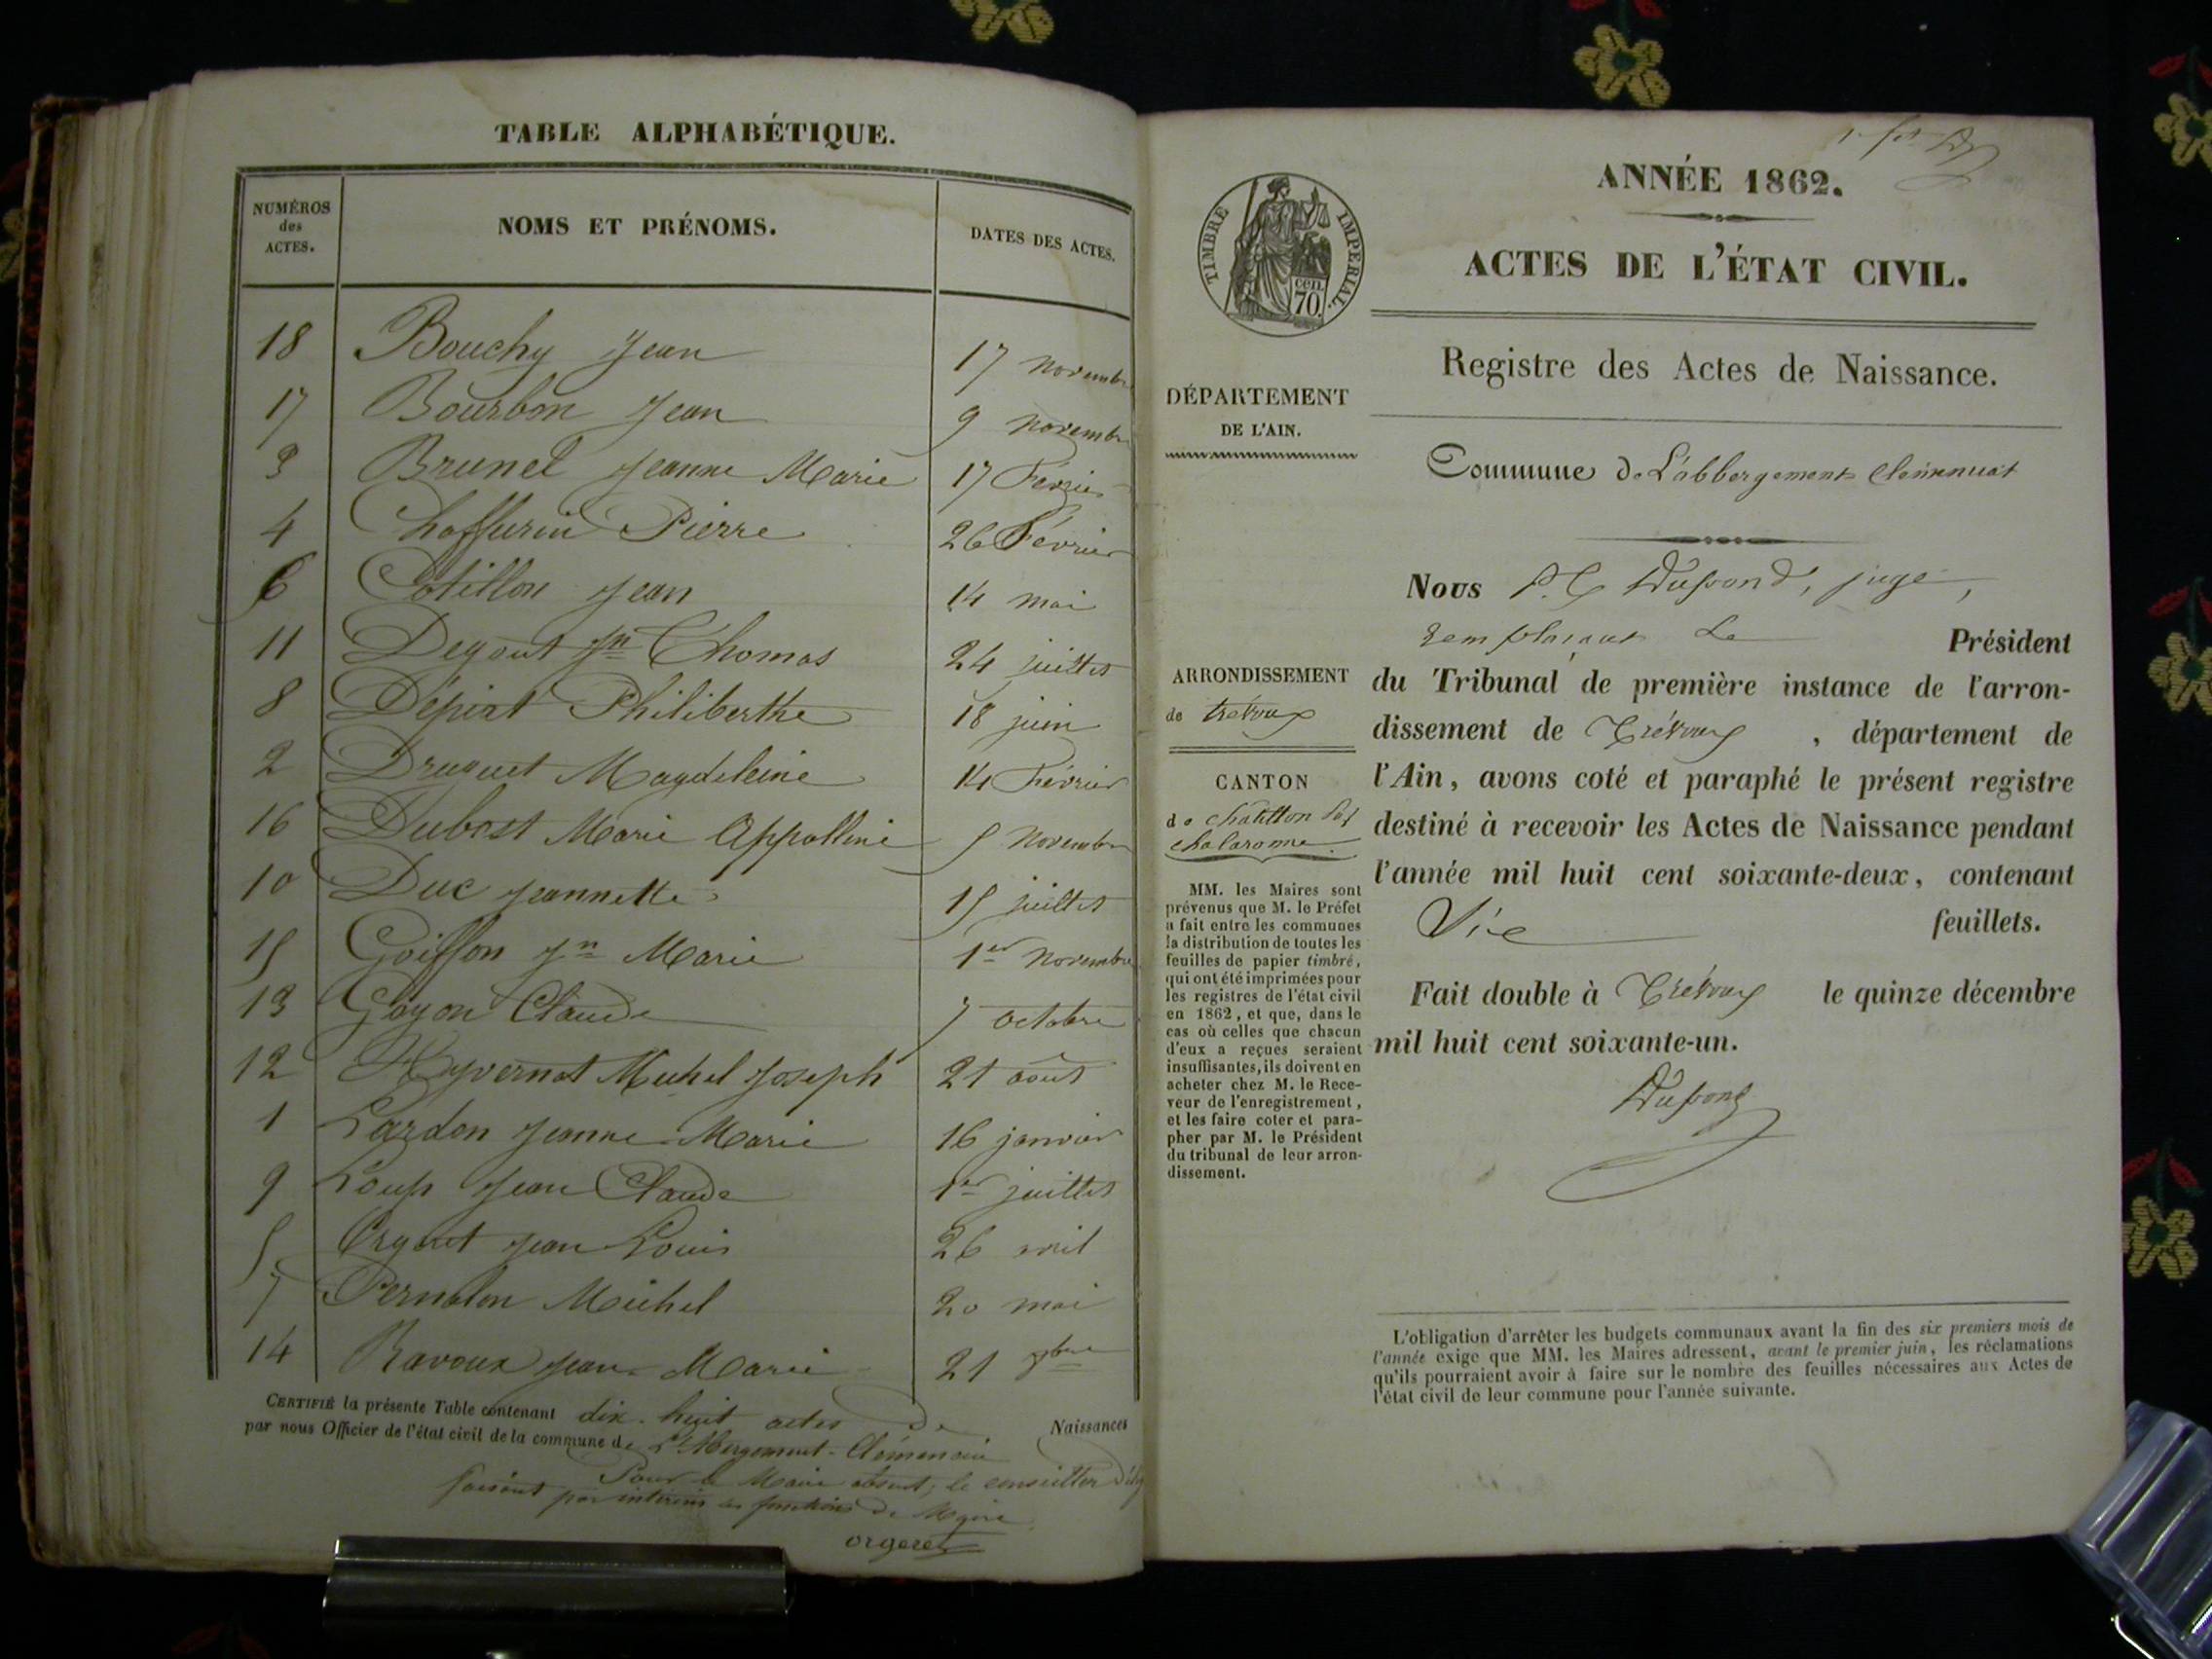 TABLE ALPHABÉTIQUE.
NUMÉROS des ACTES. NOMS ET PRÉNOMS. DATES DES ACTES.
18 Bouchy Jean 17 novembre
17 Bourbon Jean 9 novembre
3 Brunel Jeanne Marie 17 Février
4 Chaffurin Pierre 26 Février
6 Cotillon Jean 14 mai
11 Degout Jn Thomas 24 juillet
8 Dépirat Philiberthe 18 juin
2 Druguet Magdeleine 14 Février
16 Dubost Marie Appolline 5 Novembre
10 Duc Jeannette 15 juillet
15 Goiffon Jn Marie 1er Novembre
13 Goyon Claude 7 octobre
12 Hayvernat Michel Joseph 21 août
1 Lardon Jeanne Marie 16 janvier
9 Loup Jean Claude 1er juillet
5 Orgeret Jean Louis 26 avril
7 Pernolon Michel 20 mai
14 Ravoux Jean Marie 21
CERTIFIÉ la présente Table contenant dix-huit actes de Naissances
par nous Officier de l'état civil de la commune de L'Abergement-Clémencia
Pour le Maire absent, le conseiller
faisant par intérim les fonctions de Maire
orgeret
ANNÉE 1862.
ACTES DE L'ÉTAT CIVIL.
TIMBRE IMPÉRIAL.
cen. 70.
Registre des Actes de Naissance.
DÉPARTEMENT
DE L'AIN.
Commune de L'abbergement
ARRONDISSEMENT
de trévoux
CANTON
de chatillon sur
chalaronne
MM. les Maires sont
prévenus que M. le Préfet
a fait entre les communes
la distribution de toutes les
feuilles de papier timbré,
qui ont été imprimées pour
les registres de l'état civil
en 1862, et que, dans le
cas où celles que chacun
d'eux a reçues seraient
insuffisantes, ils doivent en
acheter chez M. le Rece-
veur de l'enregistrement,
et les faire coter et para-
pher par M. le Président
du tribunal de leur arron-
dissement.
Nous juge,
remplaçant le Président
du Tribunal de première instance de l'arron-
dissement de Trévoux, département de
l'Ain, avons coté et paraphé le présent registre
destiné à recevoir les Actes de Naissance pendant
l'année mil huit cent soixante-deux, contenant
Six feuillets.
Fait double à Trévoux le quinze décembre
mil huit cent soixante-un.
L'obligation d'arrêter les budgets communaux avant la fin des six premiers mois de
l'année exige que MM. les Maires adressent, avant le premier juin, les réclamations
qu'ils pourraient avoir à faire sur le nombre des feuilles nécessaires aux Actes de
l'état civil de leur commune pour l'année suivante.